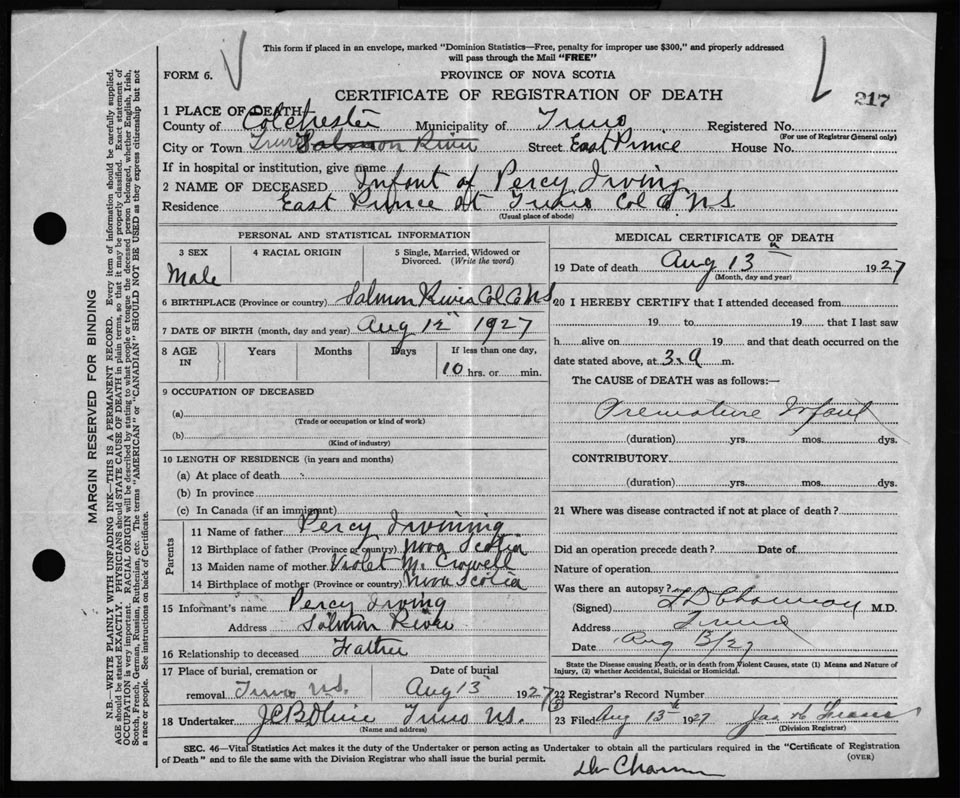 This form if placed in an envelope, marked "Dominion Statistics—Free, penalty for improper use $300," and properly addressed
will pass through the Mail "FREE"
FORM 6.
PROVINCE OF NOVA SCOTIA
CERTIFICATE OF REGISTRATION OF DEATH
217
1 PLACE OF DEATH
County of Colchester Municipality of Truro Registered No.
(For use of Registrar General only)
City or Town Truro Salmon River Street East Prince House No.
If in hospital or institution, give name
2 NAME OF DECEASED Infant of Percy Irving
Residence East Prince st Truro Col Co N.S.
(Usual place of abode)
PERSONAL AND STATISTICAL INFORMATION
3 SEX 4 RACIAL ORIGIN 5 Single, Married, Widowed or
Divorced. (Write the word)
Male
6 BIRTHPLACE (Province or country) Salmon River Col Co N.S.
7 DATE OF BIRTH (month, day and year) Aug 12th 1927
8 AGE Years Months Days If less than one day,
IN 10 hrs. or min.
9 OCCUPATION OF DECEASED
(a)
(Trade or occupation or kind of work)
(b)
(Kind of industry)
10 LENGTH OF RESIDENCE (in years and months)
(a) At place of death
(b) In province
(c) In Canada (if an immigrant)
Parents
11 Name of father Percy Irvining
12 Birthplace of father (Province or country) Nova Scotia
13 Maiden name of mother Violet M. Crowell
14 Birthplace of mother (Province or country) Nova Scotia
15 Informant's name Percy Irving
Address Salmon River
16 Relationship to deceased Father
17 Place of burial, cremation or Date of burial
removal Truro N.S. Aug 13 1927
18 Undertaker Truro N.S.
(Name and address)
MEDICAL CERTIFICATE OF DEATH
19 Date of death Aug 13 1927
(Month, day and year)
20 I HEREBY CERTIFY that I attended deceased from
19 to 19 that I last saw
h alive on 19 and that death occurred on the
date stated above, at 3.a m.
The CAUSE of DEATH was as follows:—
Premature Infant
(duration) yrs. mos. dys.
CONTRIBUTORY
(duration) yrs. mos. dys.
21 Where was disease contracted if not at place of death?
Did an operation precede death? Date of
Nature of operation
Was there an autopsy?
(Signed) M.D.
Address Truro
Date Aug 13/27
State the Disease causing Death, or in death from Violent Causes, state (1) Means and Nature of
Injury, (2) whether Accidental, Suicidal or Homicidal.
22 Registrar's Record Number
23 Filed Aug 13th 1927
(Division Registrar)
SEC. 46—Vital Statistics Act makes it the duty of the Undertaker or person acting as Undertaker to obtain all the particulars required in the "Certificate of Registration
of Death" and to file the same with the Division Registrar who shall issue the burial permit.
(OVER)
MARGIN RESERVED FOR BINDING
N.B.—WRITE PLAINLY WITH UNFADING INK—THIS IS A PERMANENT RECORD. Every item of information should be carefully supplied.
AGE should be stated EXACTLY. PHYSICIANS should STATE CAUSE OF DEATH in plain terms, so that it may be properly classified. Exact statement of
OCCUPATION is very important. RACIAL ORIGIN will be described by stating to what people or tongue the deceased person belonged, whether English, Irish,
Scotch, French, German, Russian, Ruthenian, etc. The terms "AMERICAN" or "CANADIAN" SHOULD NOT BE USED as they express citizenship but not
a race or people. See instructions on back of Certificate.